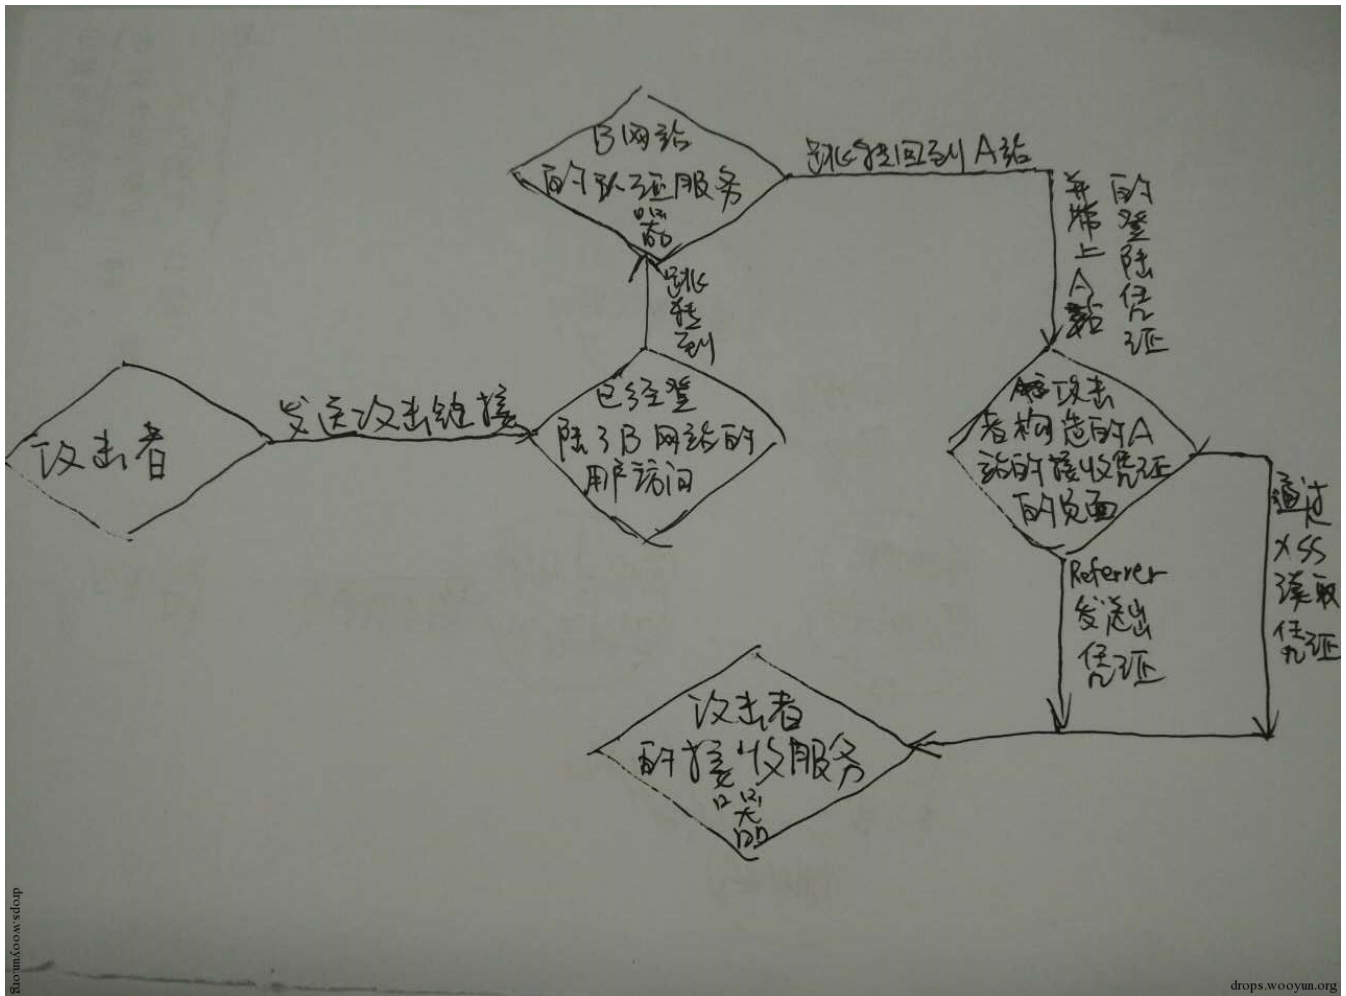 B网站
的认证服务
器
跳转回到A站
并带上A站
的登陆凭证
跳转到
攻击者
发送攻击链接
已经登
陆了B网站的
用户访问
攻击
者构造的A
站的接收凭证
的页面
Referrer
发送出
凭证
通过
XSS
读取
凭证
攻击者
的接收服务
器
drops.wooyun.org
drops.wooyun.org